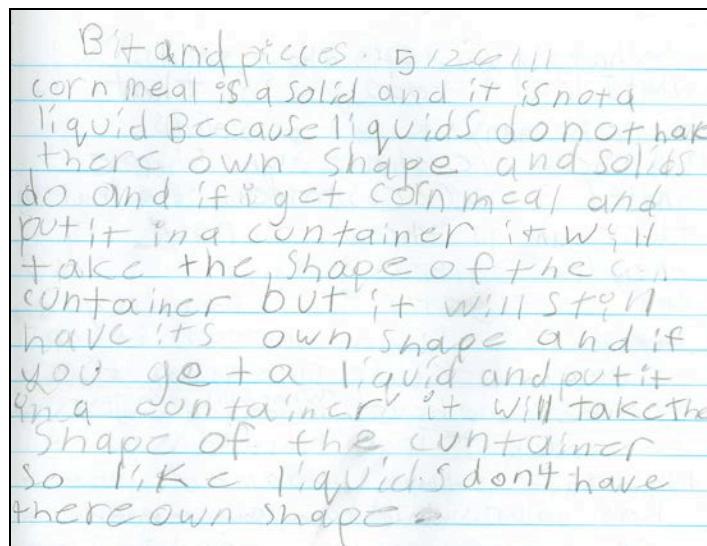 Bit and pieces 5/26/11
corn meal is a solid and it is not a
liquid Because liquids do not hak
there own shape and solids
do and if i get corn meal and
put it in a cuntainer it will
take the shape of the
cuntainer but it will still
have its own shape and if
you get a liquid and put it
in a cuntainer it will take the
shape of the cuntainer
so like liquids dont have
there own shape